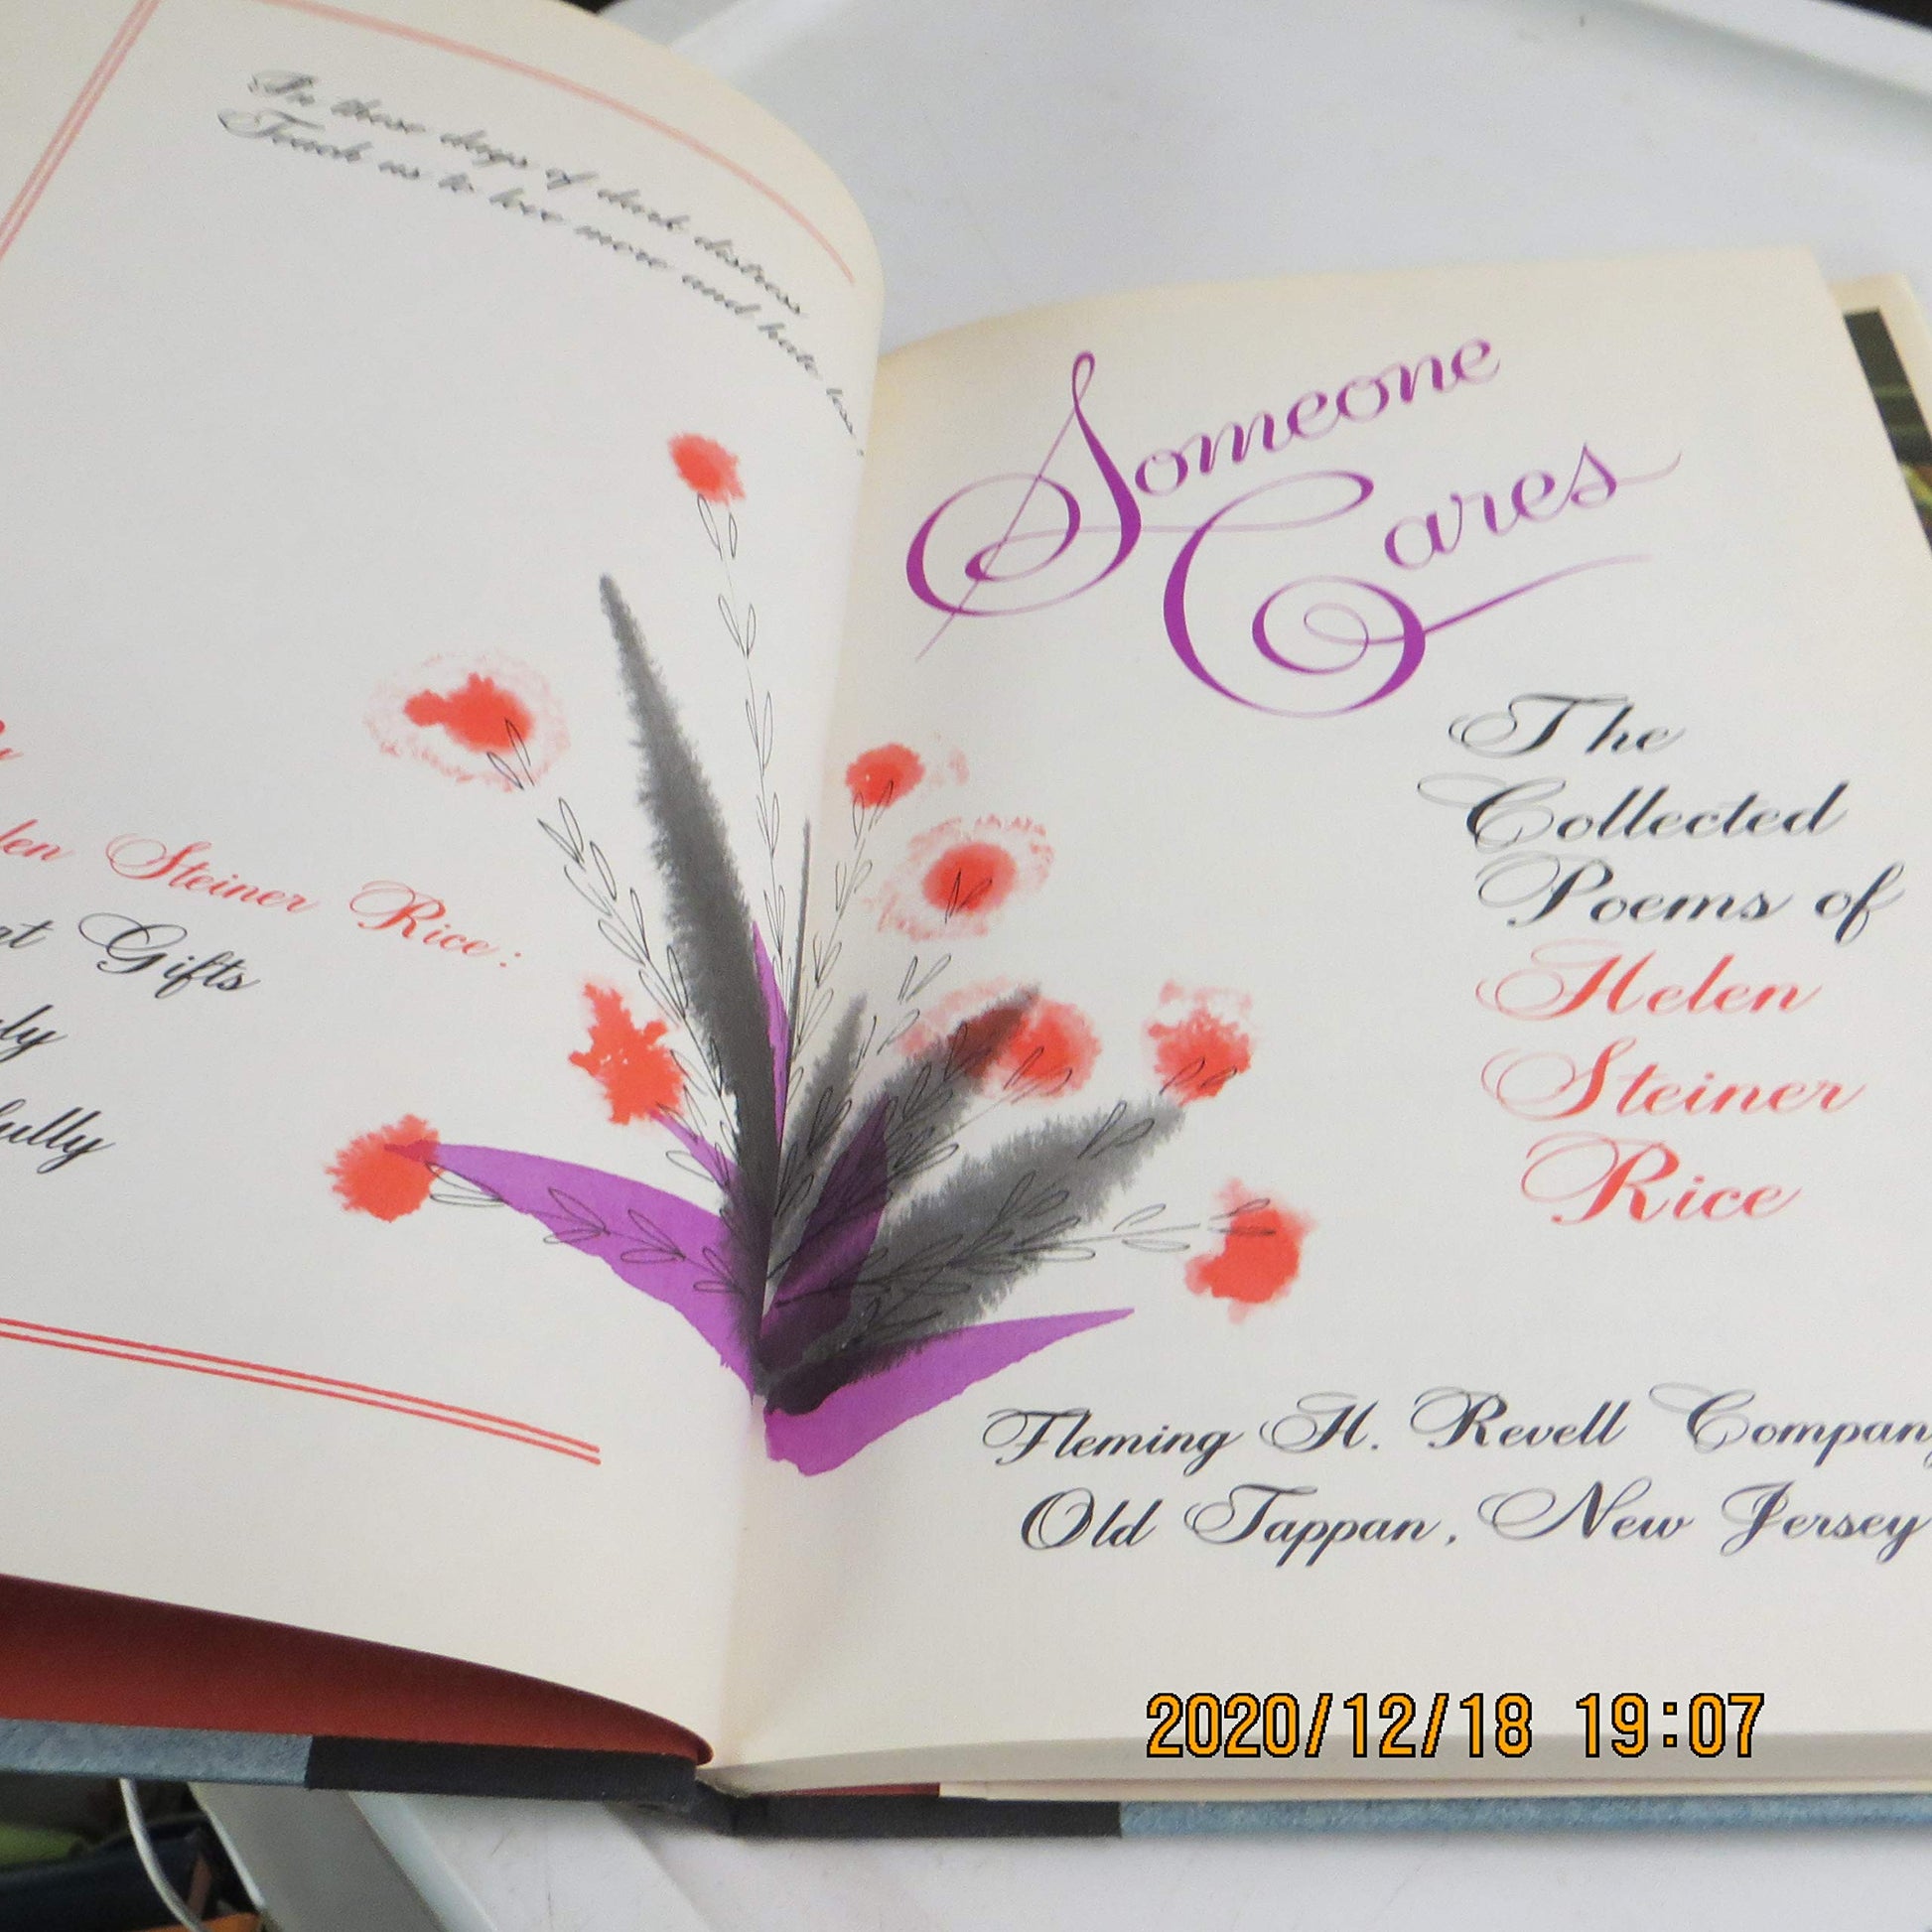 In these days of dark distress
Teach us to love more and hate less.
Steiner Rice:
Gifts
Someone
Cares
The
Collected
Poems of
Helen
Steiner
Rice
Fleming H. Revell Company
Old Tappan, New Jersey
2020/12/18 19:07